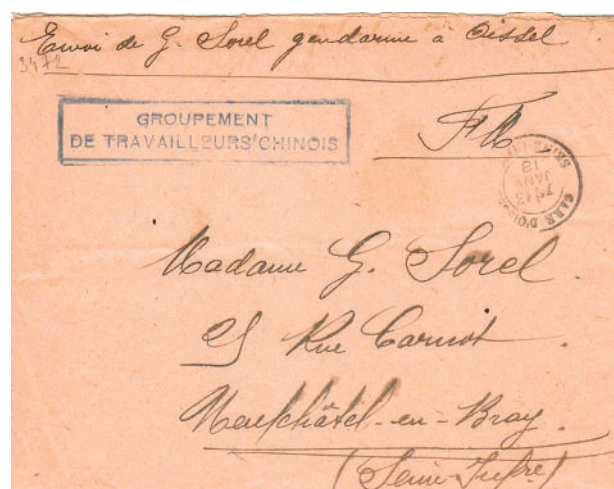 Envoi de G. Sorel gendarme à Oissel
3472
GROUPEMENT
DE TRAVAILLEURS CHINOIS
FM
GARE D'OISSEL
7 13
JANV
18
Madame G. Sorel.
25 Rue Carnot.
Neufchâtel-en-Bray.
(Seine-Infre)